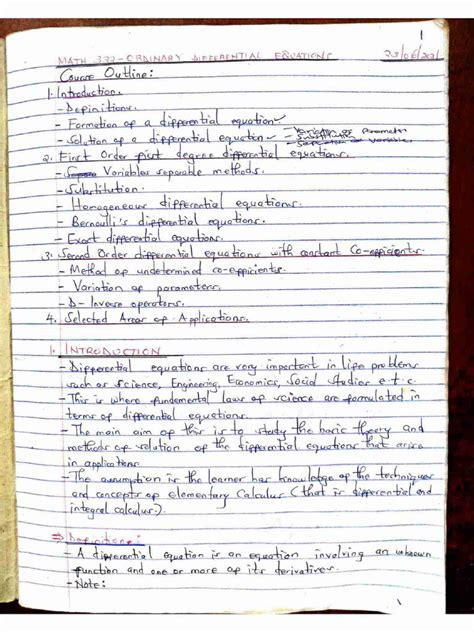 1
MATH 332 - ORDINARY DIFFERENTIAL EQUATIONS 23/06/2021
Course Outline:
1. Introduction.
- Definitions.
- Formation of a differential equation
- Solution of a differential equation - Variation of Parameter
- Substitution
- Separation of variable.
2. First Order first degree differential equations.
- Variables separable methods.
- Substitution.
- Homogeneous differential equations.
- Bernoulli's differential equations.
- Exact differential equations.
3. Second Order differential equations with constant Co-efficients.
- Method of undetermined co-efficients.
- Variation of parameters.
- D- Inverse operators.
4. Selected Areas of Applications.
1. INTRODUCTION
- Differential equations are very important in life problems
such as Science, Engineering, Economics, Social Studies e.t.c.
- This is where fundemental laws of science are formulated in
terms of differential equations.
- The main aim of this is to study the basic theory and
methods of solution of the differential equations that arise
in applications.
- The assumption is the learner has knowledge of the techniques
and concepts of elementary Calculus (that is differential and
integral calculus.)
⇒ Definitions:
- A differential equation is an equation involving an unknown
function and one or more of its derivatives.
- Note: